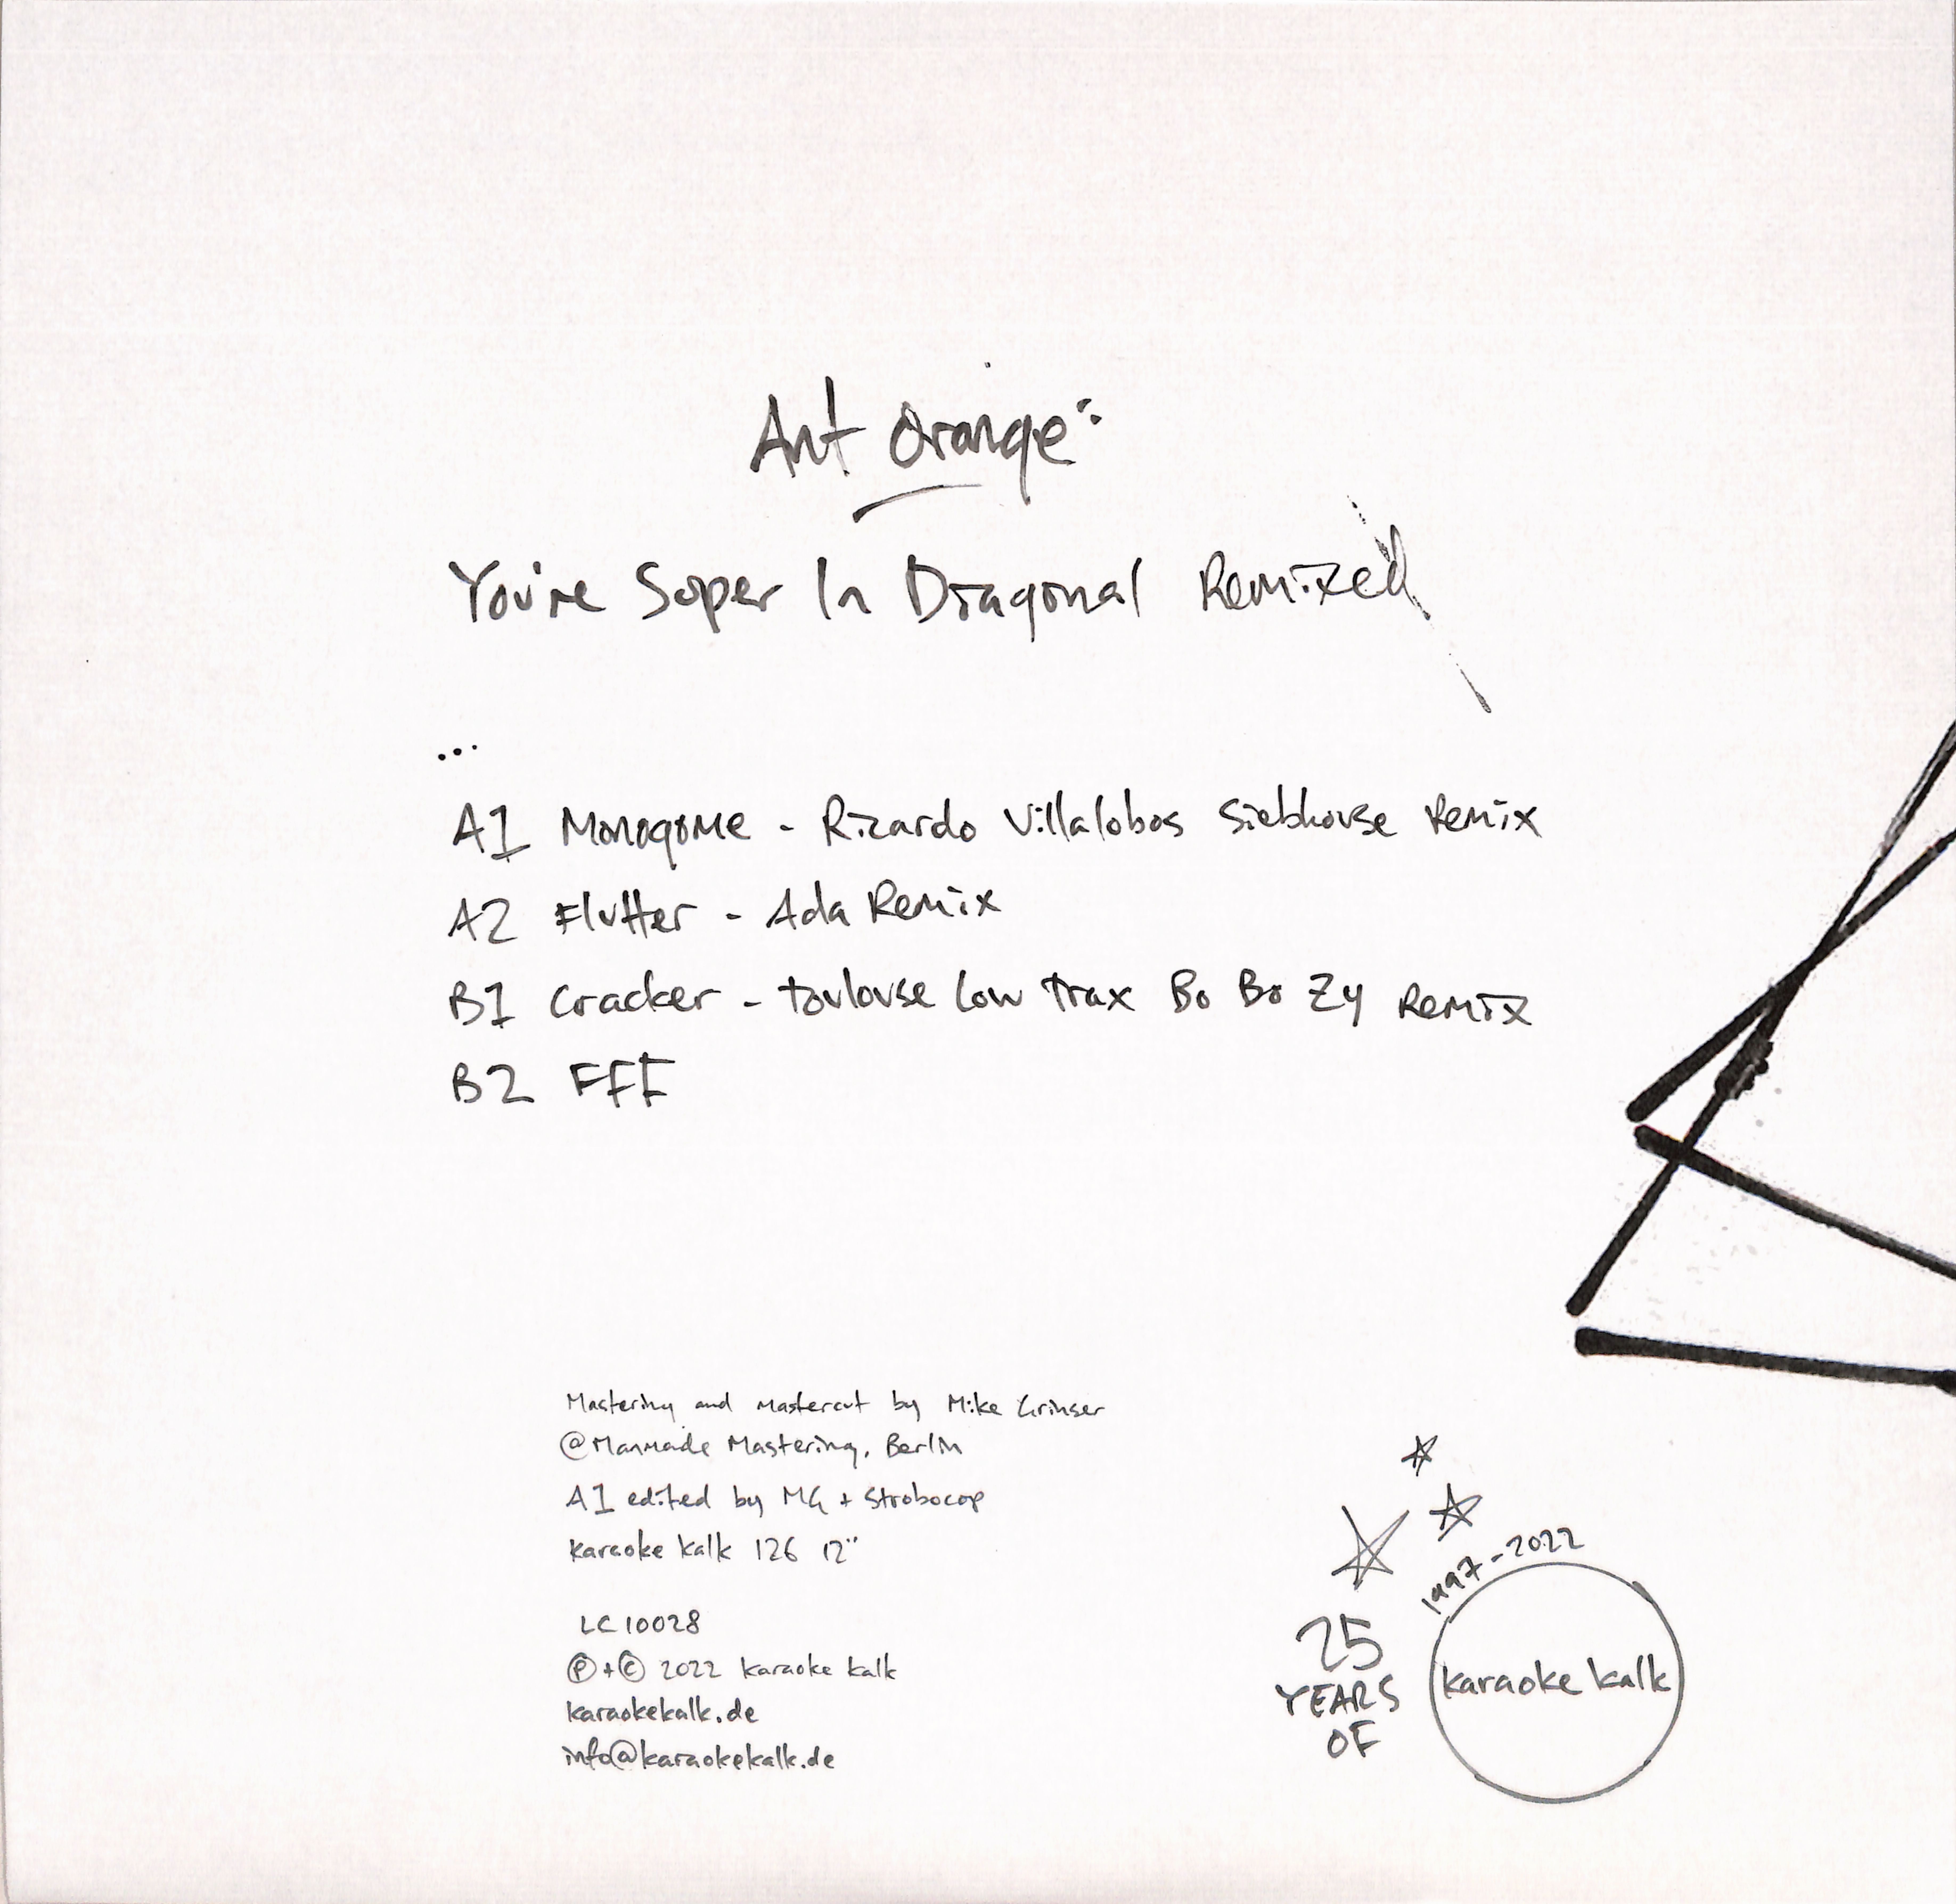 Ant Orange:
You're Super In Diagonal Remixed
...
A1 Monogome - Ricardo Villalobos Siebhouse Remix
A2 Flutter - Ada Remix
B1 Cracker - Toulouse Low Trax Bo Bo Zy Remix
B2 FFF
Mastering and mastercut by Mike Grinser
@Manmade Mastering, Berlin
A1 edited by MG + Strobocop
Karaoke Kalk 126 12"
LC 10028
℗+© 2022 Karaoke Kalk
karaokekalk.de
info@karaokekalk.de
1997-2022
25
YEARS
OF
karaoke kalk